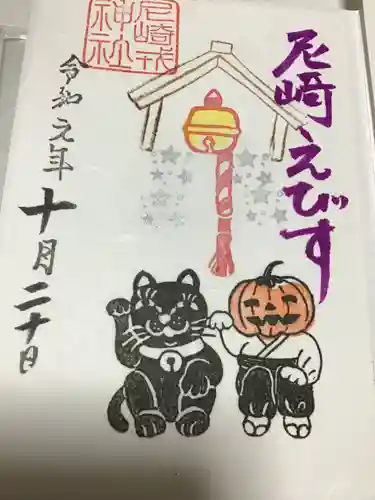 尼崎えびす
尼崎戎
神社
令和元年
十月二十日